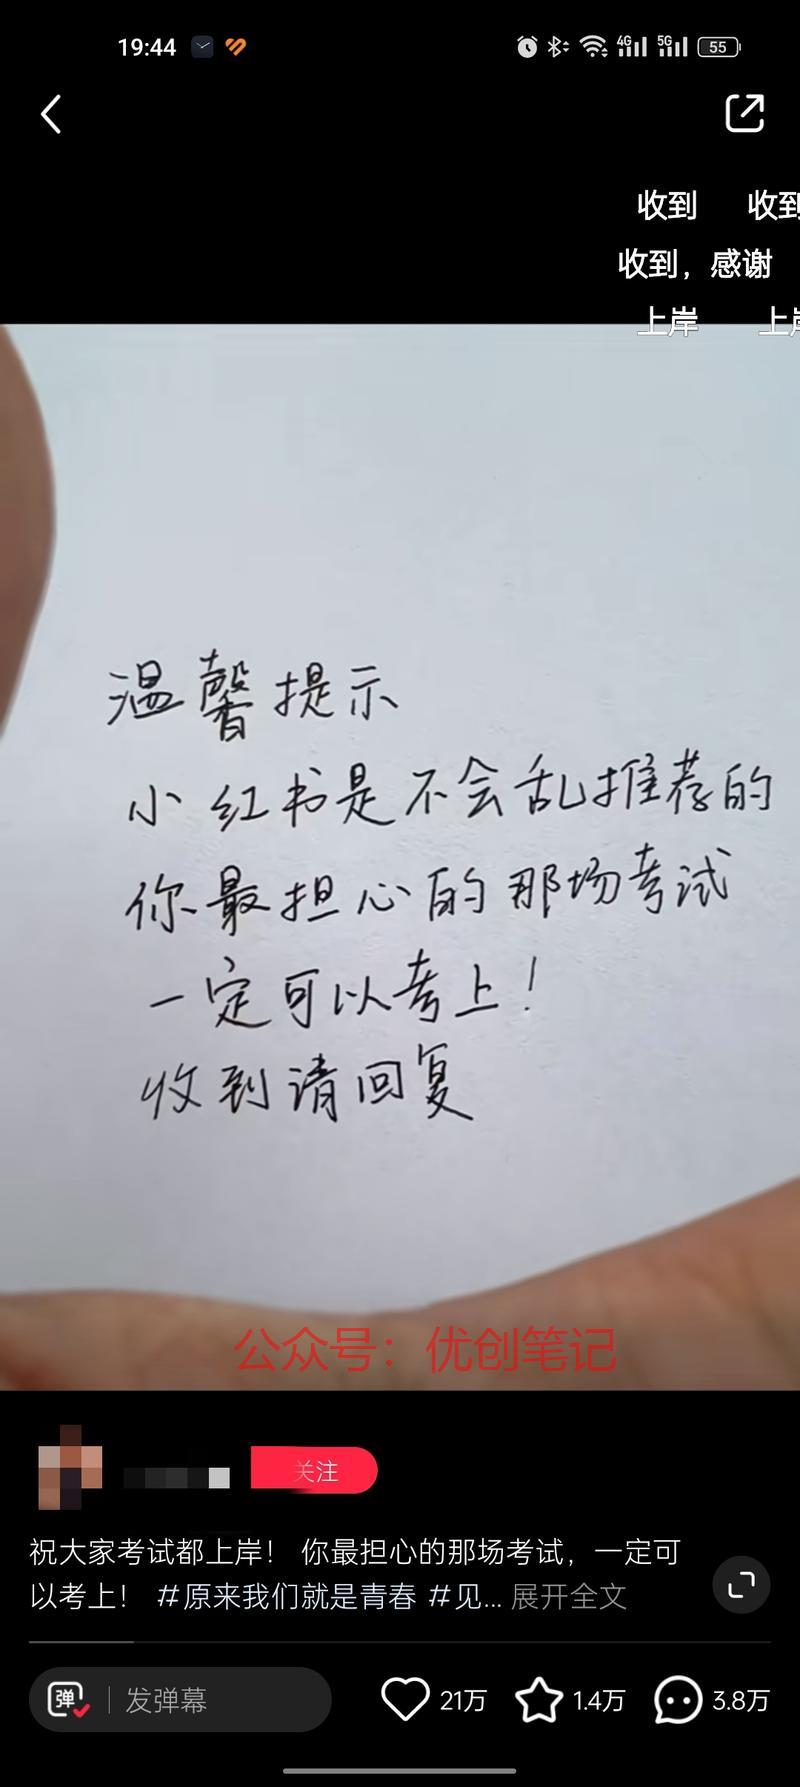 19:44
4G 5G 55
收到 收到
收到，感谢
上岸 上岸
温馨提示
小红书是不会乱推荐的
你最担心的那场考试
一定可以考上！
收到请回复
公众号：优创笔记
关注
祝大家考试都上岸！ 你最担心的那场考试，一定可
以考上！ #原来我们就是青春 #见... 展开全文
弹 发弹幕 21万 1.4万 3.8万